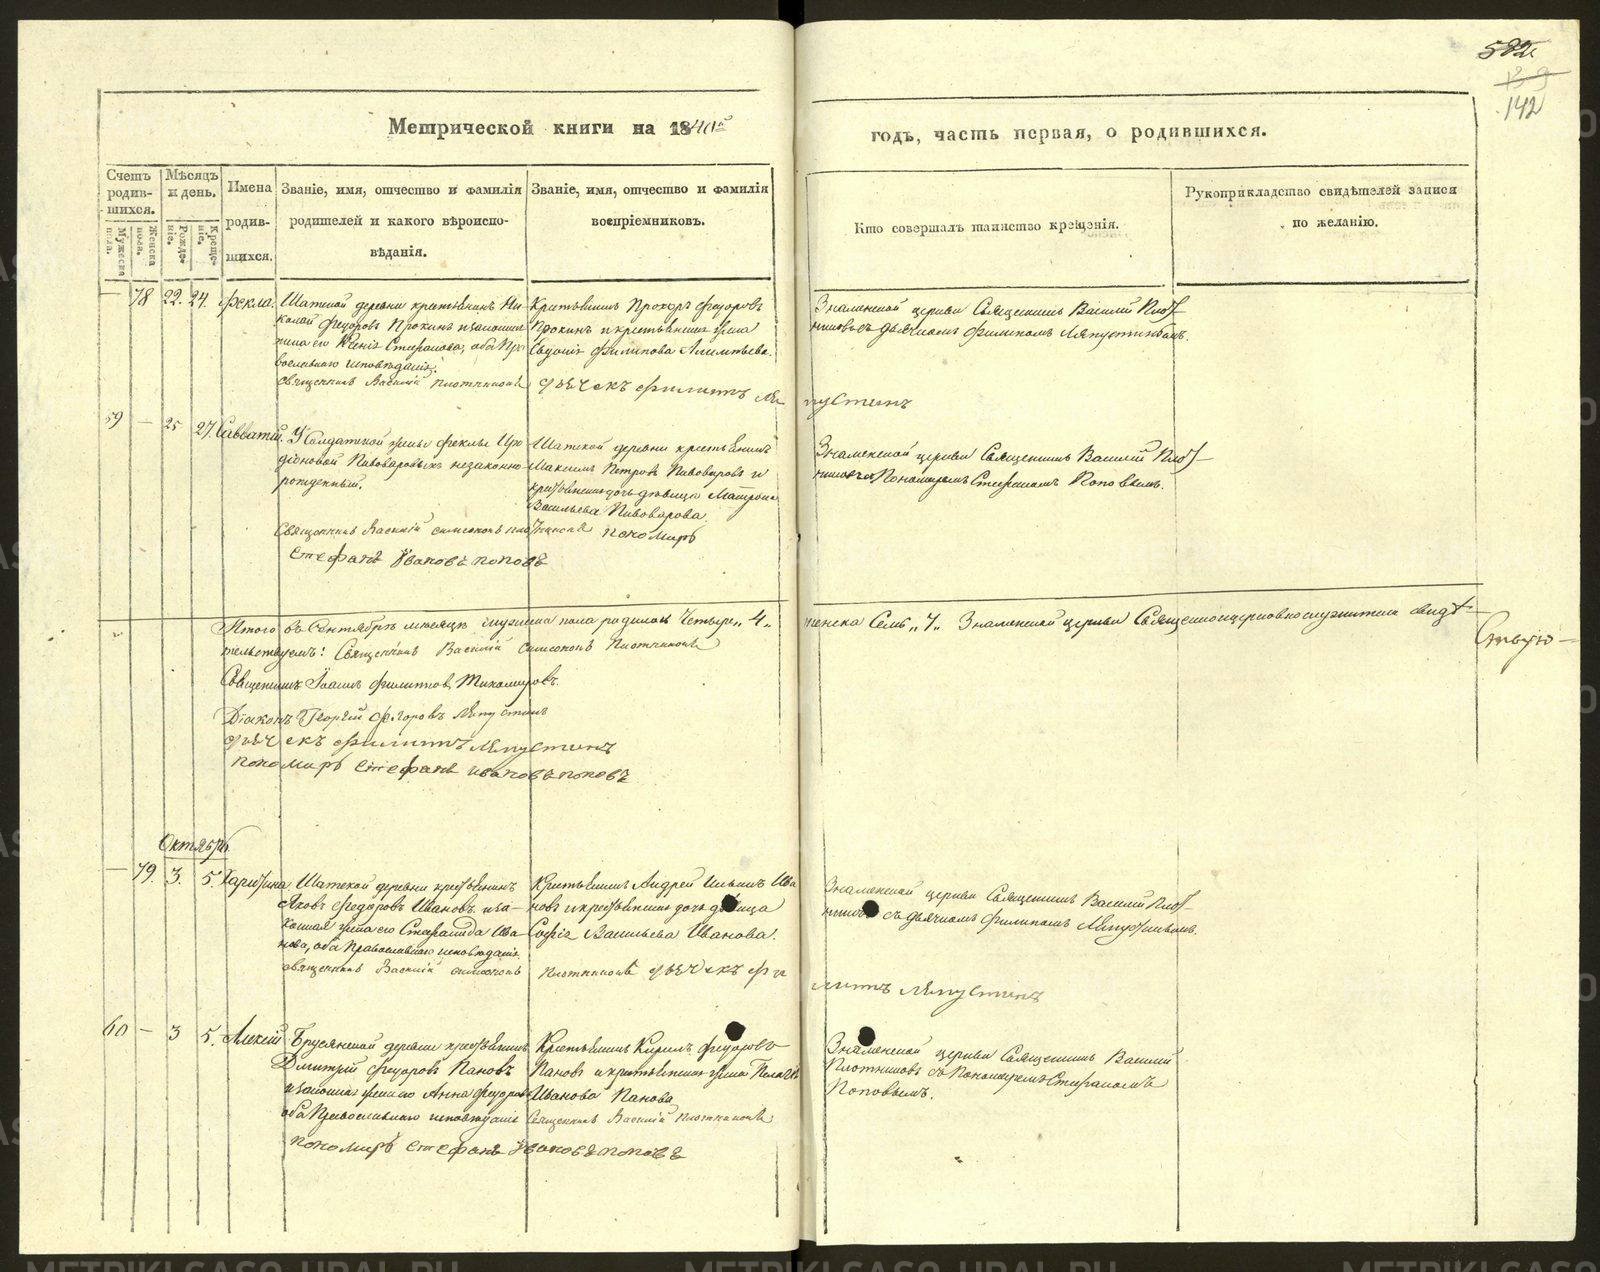 582
139
142
Метрической книги на 1840й
годъ, часть первая, о родившихся.
Счетъ родив-шихся.
Мѣсяцъ и день.
Имена родив-шихся.
Званіе, имя, отчество и фамилія родителей и какого вѣроиспо-вѣданія.
Званіе, имя, отчество и фамилія воспріемниковъ.
Кто совершалъ таинство крещенія.
Рукоприкладство свидѣтелей записи по желанію.
Мужеска пола.
Женска пола.
Рожде-ніе.
Креще-ніе.
— 78 22. 24. Фекла.
Шатской деревни крестьянинъ Ни-
колай Ѳедоровъ Прокинъ и законная
жена его Стефанова, оба Пра
вославнаго исповѣданія.
Священникъ Василій Плотниковъ
Крестьянинъ Прохоръ Ѳедоровъ
Прокинъ и крестьянская жена
Евдокія Филипова
дьячекъ Филиппъ Ля
пустинъ
Знаменской церкви Священникъ Василій Плот-
никовъ съ дьячкомъ Филипомъ Ляпустинымъ.
59 — 25 27. Савватій.
У Солдатской жены Феклы
Пивоваровыхъ незаконно
рожденный.
Шатской деревни крестьянинъ
Максимъ Петровъ Пивоваровъ и
крестьянская дочь дѣвица Матрона
Васильева Пивоварова.
Знаменской церкви Священникъ Василій Плот-
никовъ Пономаремъ Стефаномъ Поповымъ.
Священникъ Василій Симсоновъ Плотниковъ пономарь
Стефанъ Ивановъ Поповъ
Итого въ Сентябрѣ мѣсяцѣ мужеска пола родилось Четыре „4„
женска Семь „7„ Знаменской церкви Священноцерковнослужители свидѣ-
ствую-
тельствуемъ: Священникъ Василій Симсоновъ Плотниковъ
Священникъ Іоаннъ Филиповъ Тихомировъ.
Діаконъ Георгій Ляпустинъ
дьячекъ Филиппъ Ляпустинъ
пономарь Стефанъ Ивановъ Поповъ
Октябрь
— 79. 3. 5. Харитина.
Шатской деревни крестьянинъ
Яковъ Ѳедоровъ Ивановъ и за-
конная жена его Стефанида Ива-
нова, оба Православнаго исповѣданія.
Священникъ Василій Симсоновъ
Крестьянинъ Андрей Ильинъ Ива
новъ и крестьянская дочь дѣвица
Софія Васильева Иванова.
Плотниковъ дьячекъ Фи
липпъ Ляпустинъ
Знаменской церкви Священникъ Василій Плот-
никовъ съ дьячкомъ Филипомъ Ляпустинымъ.
60 — 3 5. Алексій
Брусянской деревни крестьянинъ
Дмитрій Ѳедоровъ Пановъ
и законная жена его Анна Ѳедорова
оба Православнаго исповѣданія
Крестьянинъ Кирилъ Ѳедоровъ
Пановъ и крестьянская жена Пелагія
Иванова Панова
Священникъ Василій Плотниковъ
пономарь Стефанъ Ивановъ Поповъ
Знаменской церкви Священникъ Василій
Плотниковъ съ Пономаремъ Стефаномъ
Поповымъ.